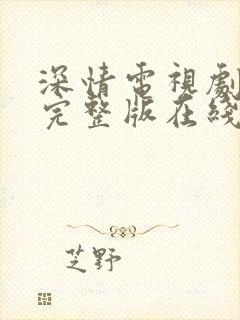 深情電視劇
完整版在綫
芝野